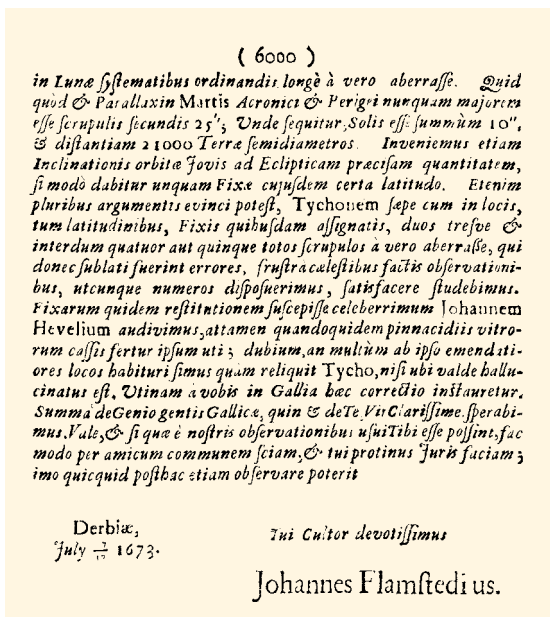 ( 6000 )
in Lunæ ſyſtematibus ordinandis longè à vero aberraſſe. Quid
quòd & Parallaxin Martis Acronici & Perigei nunquam majorem
eſſe ſcrupulis ſecundis 25"; Unde ſequitur, Solis eſſe ſummùm 10",
& diſtantiam 21000 Terræ ſemidiametros. Inveniemus etiam
Inclinationis orbitæ Jovis ad Eclipticam præciſam quantitatem,
ſi modò dabitur unquam Fixæ cujuſdem certa latitudo. Etenim
pluribus argumentis evinci poteſt, Tychonem ſæpe cum in locis,
tum latitudinibus, Fixis quibuſdam aſſignatis, duos treſve &
interdum quatuor aut quinque totos ſcrupulos à vero aberraſſe, qui
donec ſublati fuerint errores, fruſtra cæleſtibus factis obſervationi-
bus, utcunque numeros diſpoſuerimus, ſatisfacere ſtudebimus.
Fixarum quidem reſtitutionem ſuſcepiſſe celeberrimum Johannem
Hevelium audivimus, attamen quandoquidem pinnacidiis vitro-
rum caſſis fertur ipſum uti; dubium, an multùm ab ipſo emendati-
ores locos habituri ſimus quam reliquit Tycho, niſi ubi valde hallu-
cinatus eſt. Utinam à vobis in Gallia hæc correctio inſtauretur.
Summa de Genio gentis Gallicæ, quin & de Te, Vir Clariſſime, ſperabi-
mus. Vale, & ſi quæ è noſtris obſervationibus uſui Tibi eſſe poſſint, fac
modo per amicum communem ſciam, & tui protinus Juris faciam;
imo quicquid poſthac etiam obſervare poterit
Derbiæ,
July 7/17 1673.
Tui Cultor devotiſſimus
Johannes Flamſtedius.